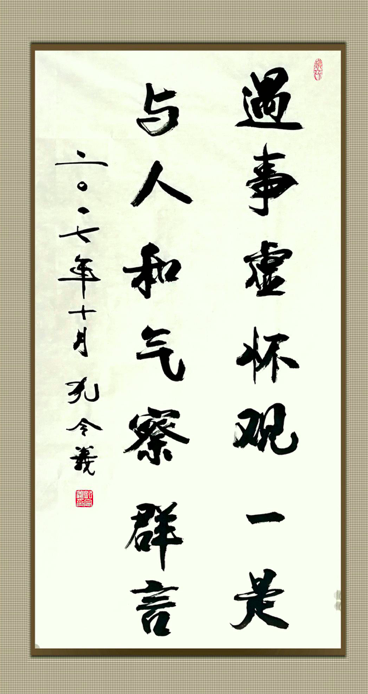 遇事虚怀观一是
与人和气察群言
二〇一七年十月 孔令義